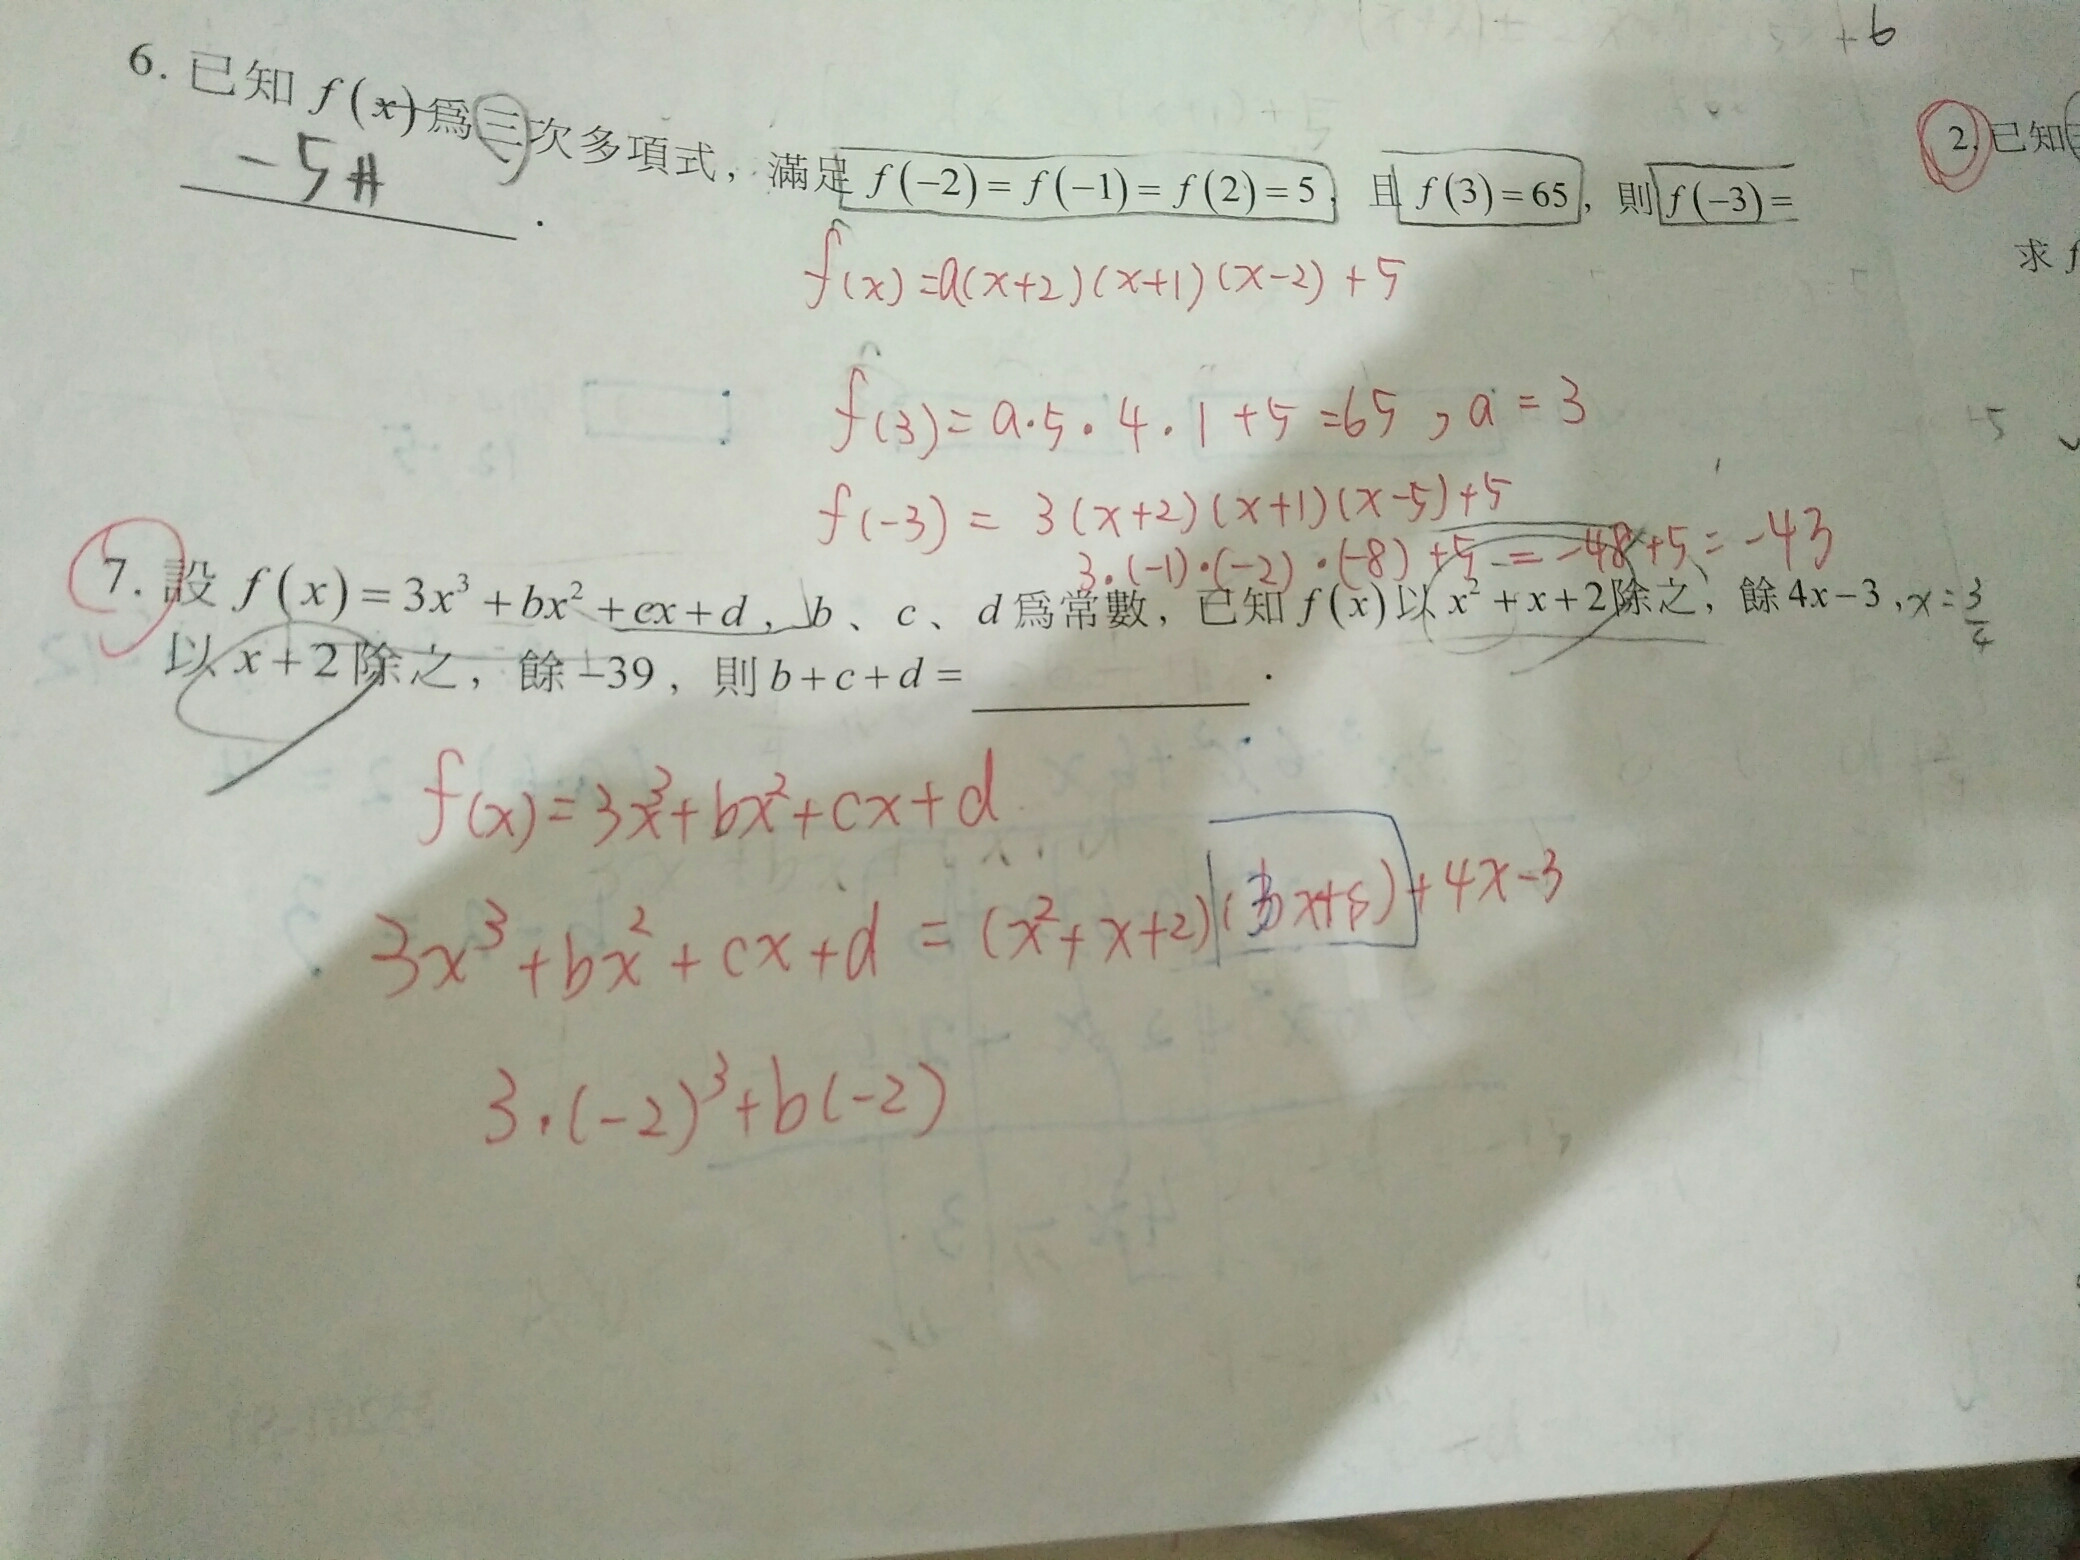 6. 已知 f(x) 為三次多項式，滿足 f(−2) = f(−1) = f(2) = 5，且 f(3) = 65，則 f(−3) =
−5#
f(x) = a(x+2)(x+1)(x−2) + 5
f(3) = a·5·4·1 + 5 = 65, a = 3
f(−3) = 3(x+2)(x+1)(x−5)+5
3·(−1)·(−2)·(−8) + 5 = −48+5 = −43
7. 設 f(x) = 3x³ + bx² + cx + d，b、c、d 為常數，已知 f(x) 以 x² + x + 2 除之，餘 4x − 3, x = 3/4
以 x + 2 除之，餘 −39，則 b + c + d = ______.
f(x) = 3x³ + bx² + cx + d
3x³ + bx² + cx + d = (x² + x + 2)(3x+ ) + 4x − 3
3·(−2)³ + b(−2)
+6
2. 已知
求 f
−5